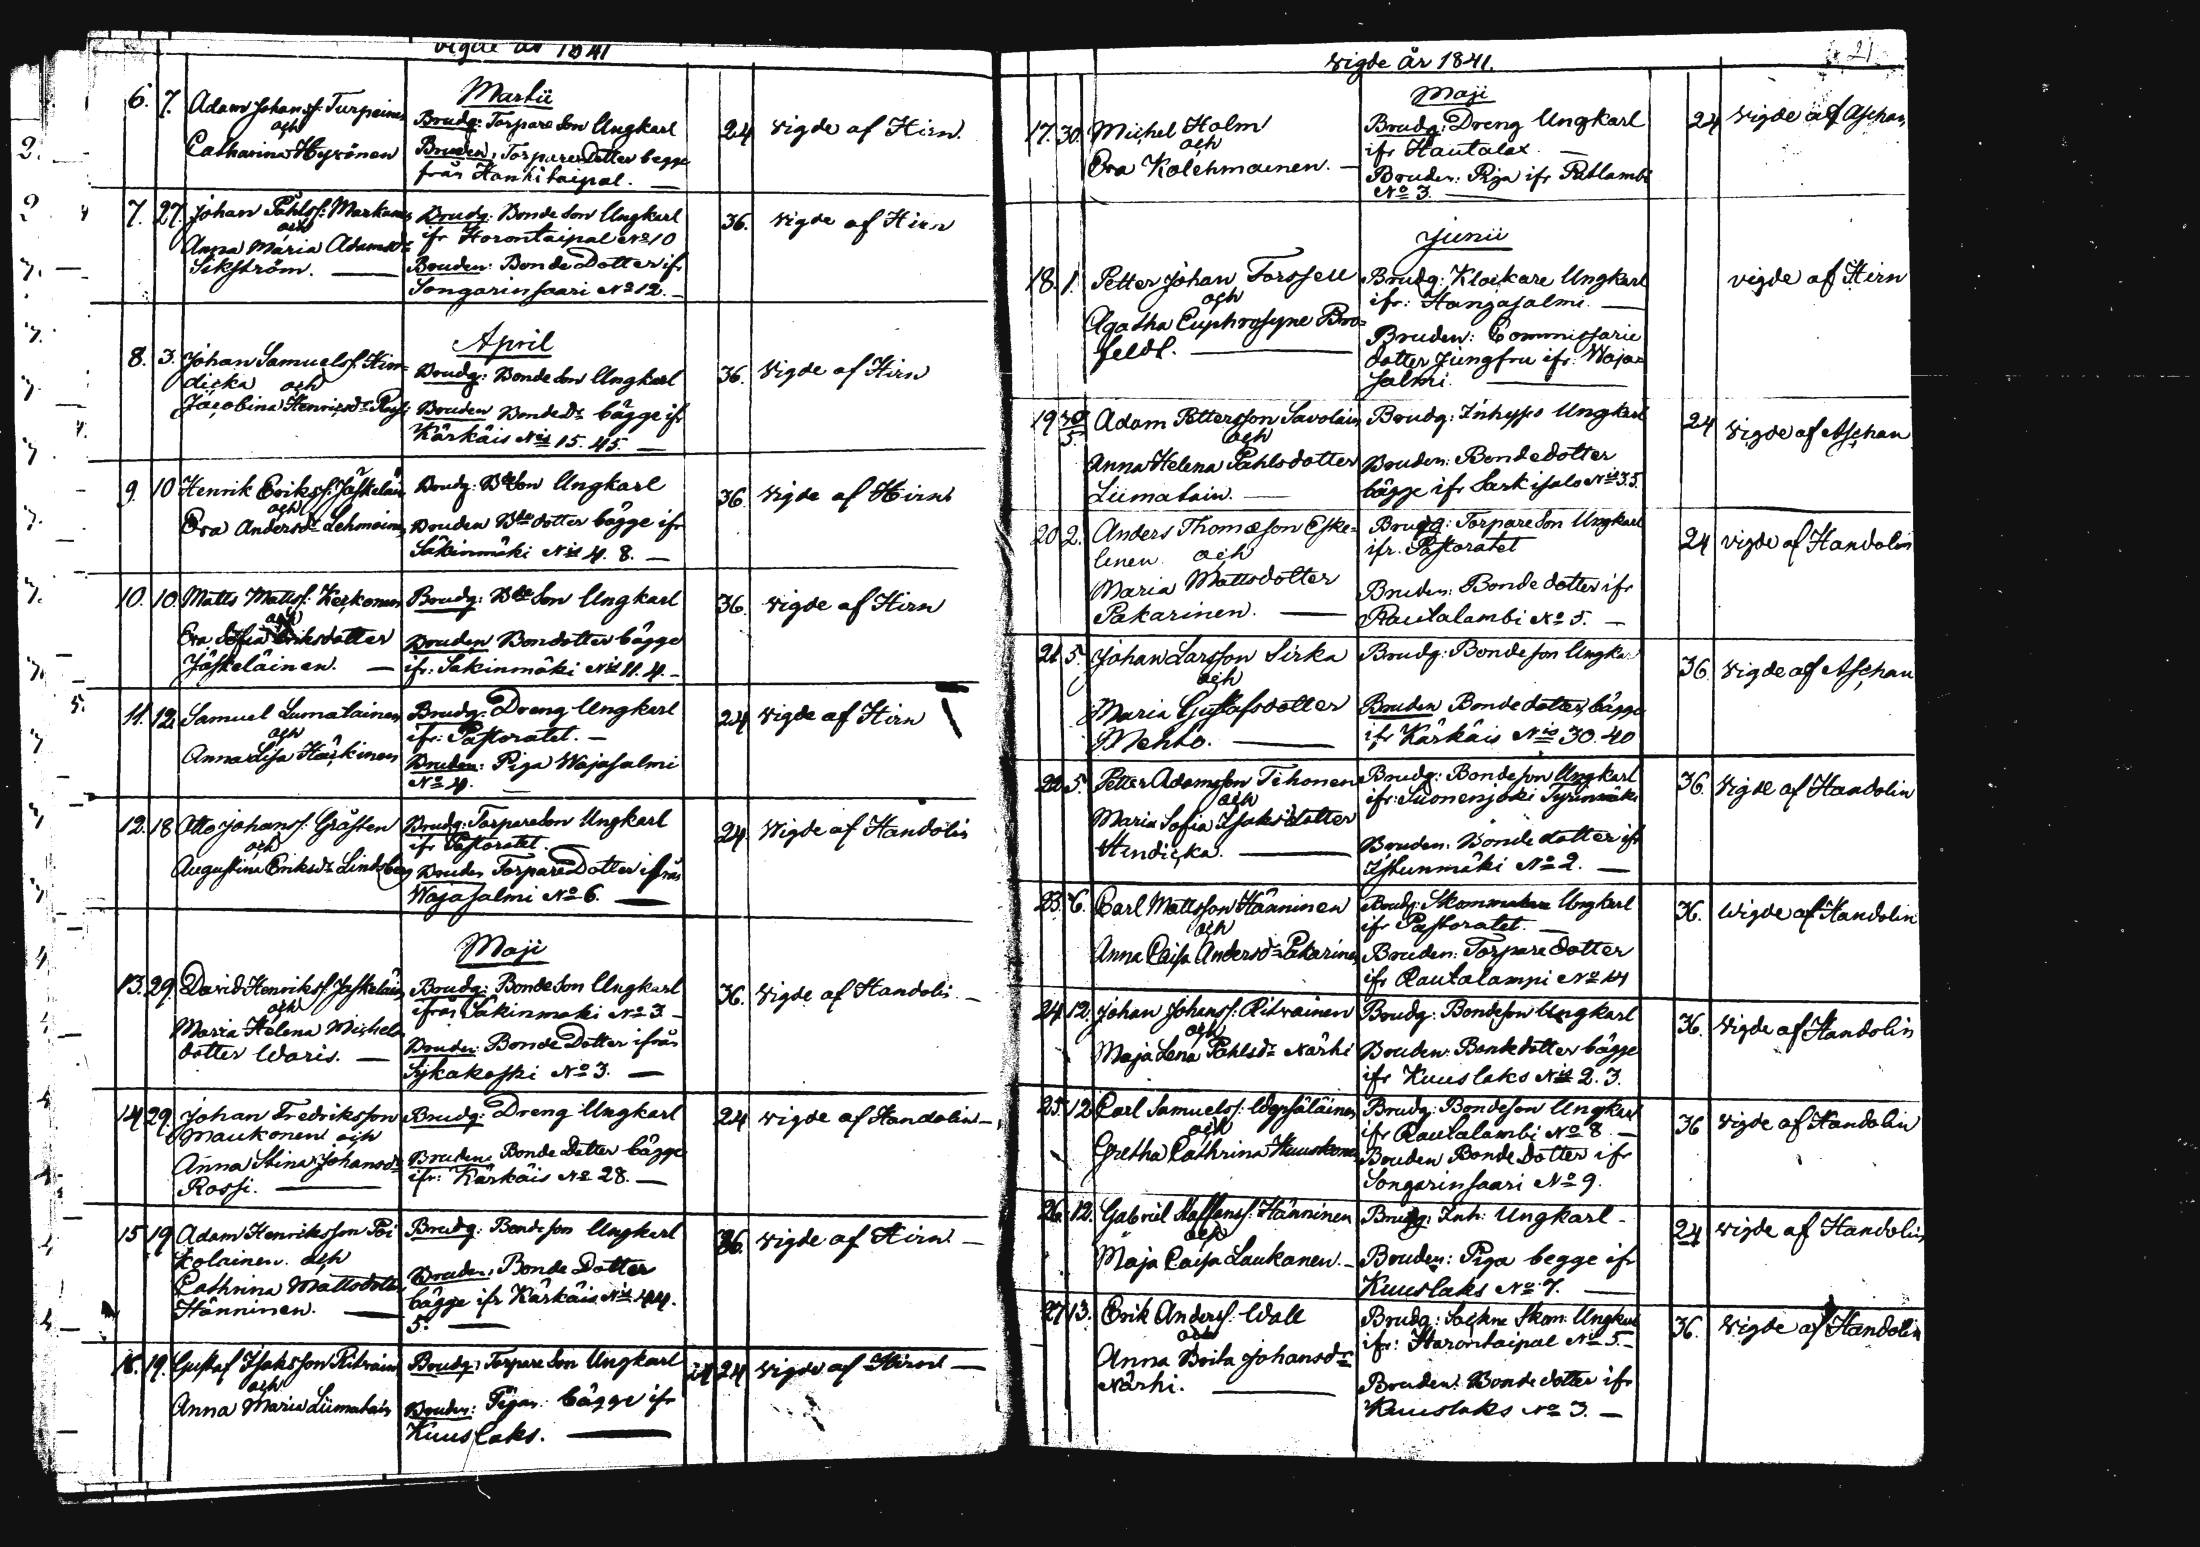 Vigde år 1841
Martii
6. 7. Adam Johansf: Turpeinen
och
Catharina Hyvönen
Brudg: Torpare Son Ungkarl
Bruden: Torpare Dotter begge
från Hankitaipal. —
24 vigde af Hirn.
7. 27. Johan Påhlsf: Markanen
och
Anna Maria Adamsdr
Sikström. —
Brudg: Bonde Son Ungkarl
ifr Horontaipal No 10
Bruden: Bonde Dotter ifr
Songarinsaari No 12. —
36. vigde af Hirn
April
8. 3. Johan Samuelsf. Hin=
dicka och
Jacobina Henricsdr Rossi
Brudg: Bonde Son Ungkarl
Bruden Bondedr bägge ifr
Kärkäis Nis 15. 45. —
36. Vigde af Hirn
9. 10 Henrik Eriksf. Jäskeläin
och
Eva Andersdr Lehmoinen
Brudg: Bdeson Ungkarl
Bruden Bde dotter bägge ifr
Säkinmäki Nis 4. 8. —
36. Vigde af Hirn
10. 10. Matts Mattsf: Keckonen
och
Eva Sofia Eriksdotter
Jäskeläinen. —
Brudg: Bde Son Ungkarl
Bruden Bondotter bägge
ifr: Sakinmäki Nis 11. 4. —
36. vigde af Hirn
11. 12. Samuel Lumatainen
och
Anna Lisa Häckinen
Brudg: Dreng Ungkarl
ifr: Pastoratet. —
Bruden: Piga Wajasalmi
No 4. —
24 vigde af Hirn
12. 18 Otto Johansf. Gråsten
och
Augustina Eriksdr Lindsberg
Brudg: Torpare Son Ungkarl
ifr Pastoratet.
Bruden Torpare Dotter ifrån
Wajasalmi No 6. —
24. Vigde af Handolin
Maji
13. 29. David Henriksf. Jaskeläin
och
Maria Helena Michels
dotter Waris. —
Brudg: Bonde Son Ungkarl
ifrån Sakinmaki No 3. —
Bruden: Bonde Dotter ifrån
Sijkakoski No 3. —
36. Vigde af Handoli. —
14 29. Johan Fredriksson
Maukonen och
Anna Stina Johansdr
Rossi. —
Brudg: Dreng Ungkarl
Bruden: Bonde Dotter bägge
ifr: Kärkäis No 28. —
24 vigde af Handolin —
15 19 Adam Henriksson Poi
kolainen. och
Cathrina Mattsdotter
Hänninen. —
Brudg: Bondeson Ungkarl
Bruden: Bonde Dotter
bägge ifr Kärkäis Nis 44.
5. —
36. vigde af Hirn —
16. 19. Gustaf Isaksson Ritvain
och
Anna Maria Liimatain
Brudg: Torpare Son Ungkarl
Bruden: Pigan bägge ifr
Kuuslaks. —
24 vigde af Hirn —
21
Vigde år 1841.
Maji
17. 30. Michel Holm
och
Eva Kolehmainen. —
Brudg: Dreng Ungkarl
ifr Hautalax. —
Bruden: Piga ifr Rutlambi
No 3. —
24 vigde af Aschan
Junii
18. 1. Petter Johan Forssell
och
Agatha Euphrosyne Bro=
feldt. —
Brudg: Klockare Ungkarl
ifr: Hangasalmi. —
Bruden: Commissarie
dotter Jungfru ifr. Waja=
salmi. —
vigde af Hirn
19 30/5 Adam Pettersson Savolain
och
Anna Helena Påhlsdotter
Liimatain. —
Brudg: Inhyses Ungkarl
Bruden: Bondedotter
bägge ifr Sarkisalo Nis 3.5.
24 vigde af Aschan
20 2. Anders Thomasson Eske=
linen. och
Maria Mattsdotter
Pakarinen. —
Brudg: Torpare Son Ungkarl
ifr. Pastoratet
Bruden: Bonde dotter ifr
Rautalambi No 5. —
24 vigde af Handolin
21 5. Johan Larsson Sirka
och
Maria Gustafsdotter
Mehto. —
Brudg: Bondeson Ungkar
Bruden Bondedotter, bägge
ifr Kärkäis Nis 30. 40
36. vigde af Aschan
22 5. Petter Adamsson Tihonen
och
Maria Sofia Isaksdotter
Hindicka. —
Brudg: Bondeson Ungkarl
ifr: Suonenjoki Tyrinmäki
Bruden: Bonde dotter ifr
Istunmäki No 2. —
36. Vigde af Handolin
23. 6. Carl Mattsson Hänninen
och
Anna Caisa Andersdr Pakarinen
Brudg: Skommakare Ungkarl
ifr Pastoratet. —
Bruden: Torpare dotter
ifr Rautalampi No 14
36. Wigde af Handolin
24 12. Johan Johansf: Ritvainen
och
Maja Lena Påhlsdr Närhi
Brudg: Bondeson Ungkarl
Bruden: Bonde dotter bägge
ifr Kuuslaks Nis 2. 3.
36. Vigde af Handolin
25. 12 Carl Samuelsf:
och
Gretha Cathrina Kuuskonen
Brudg: Bondeson Ungkarl
ifr Rautalambi No 8. —
Bruden Bonde dotter ifr
Songarinsaari No 9.
36 vigde af Handolin
26. 12. Gabriel Staffansf: Hänninen
och
Maja Caisa Laukanen. —
Brudg: Inh: Ungkarl —
Bruden: Piga begge ifr
Kuuslaks No 7. —
24 vigde af Handolin
27 13. Erik Andersf. Wall
och
Anna Brita Johansdr
Närhi. —
Brudg: Sockne Skom: Ungkarl
ifr: Harontaipal No 5. —
Bruden: Bonde dotter ifr
Kuuslaks No 3. —
36. Vigde af Handolin